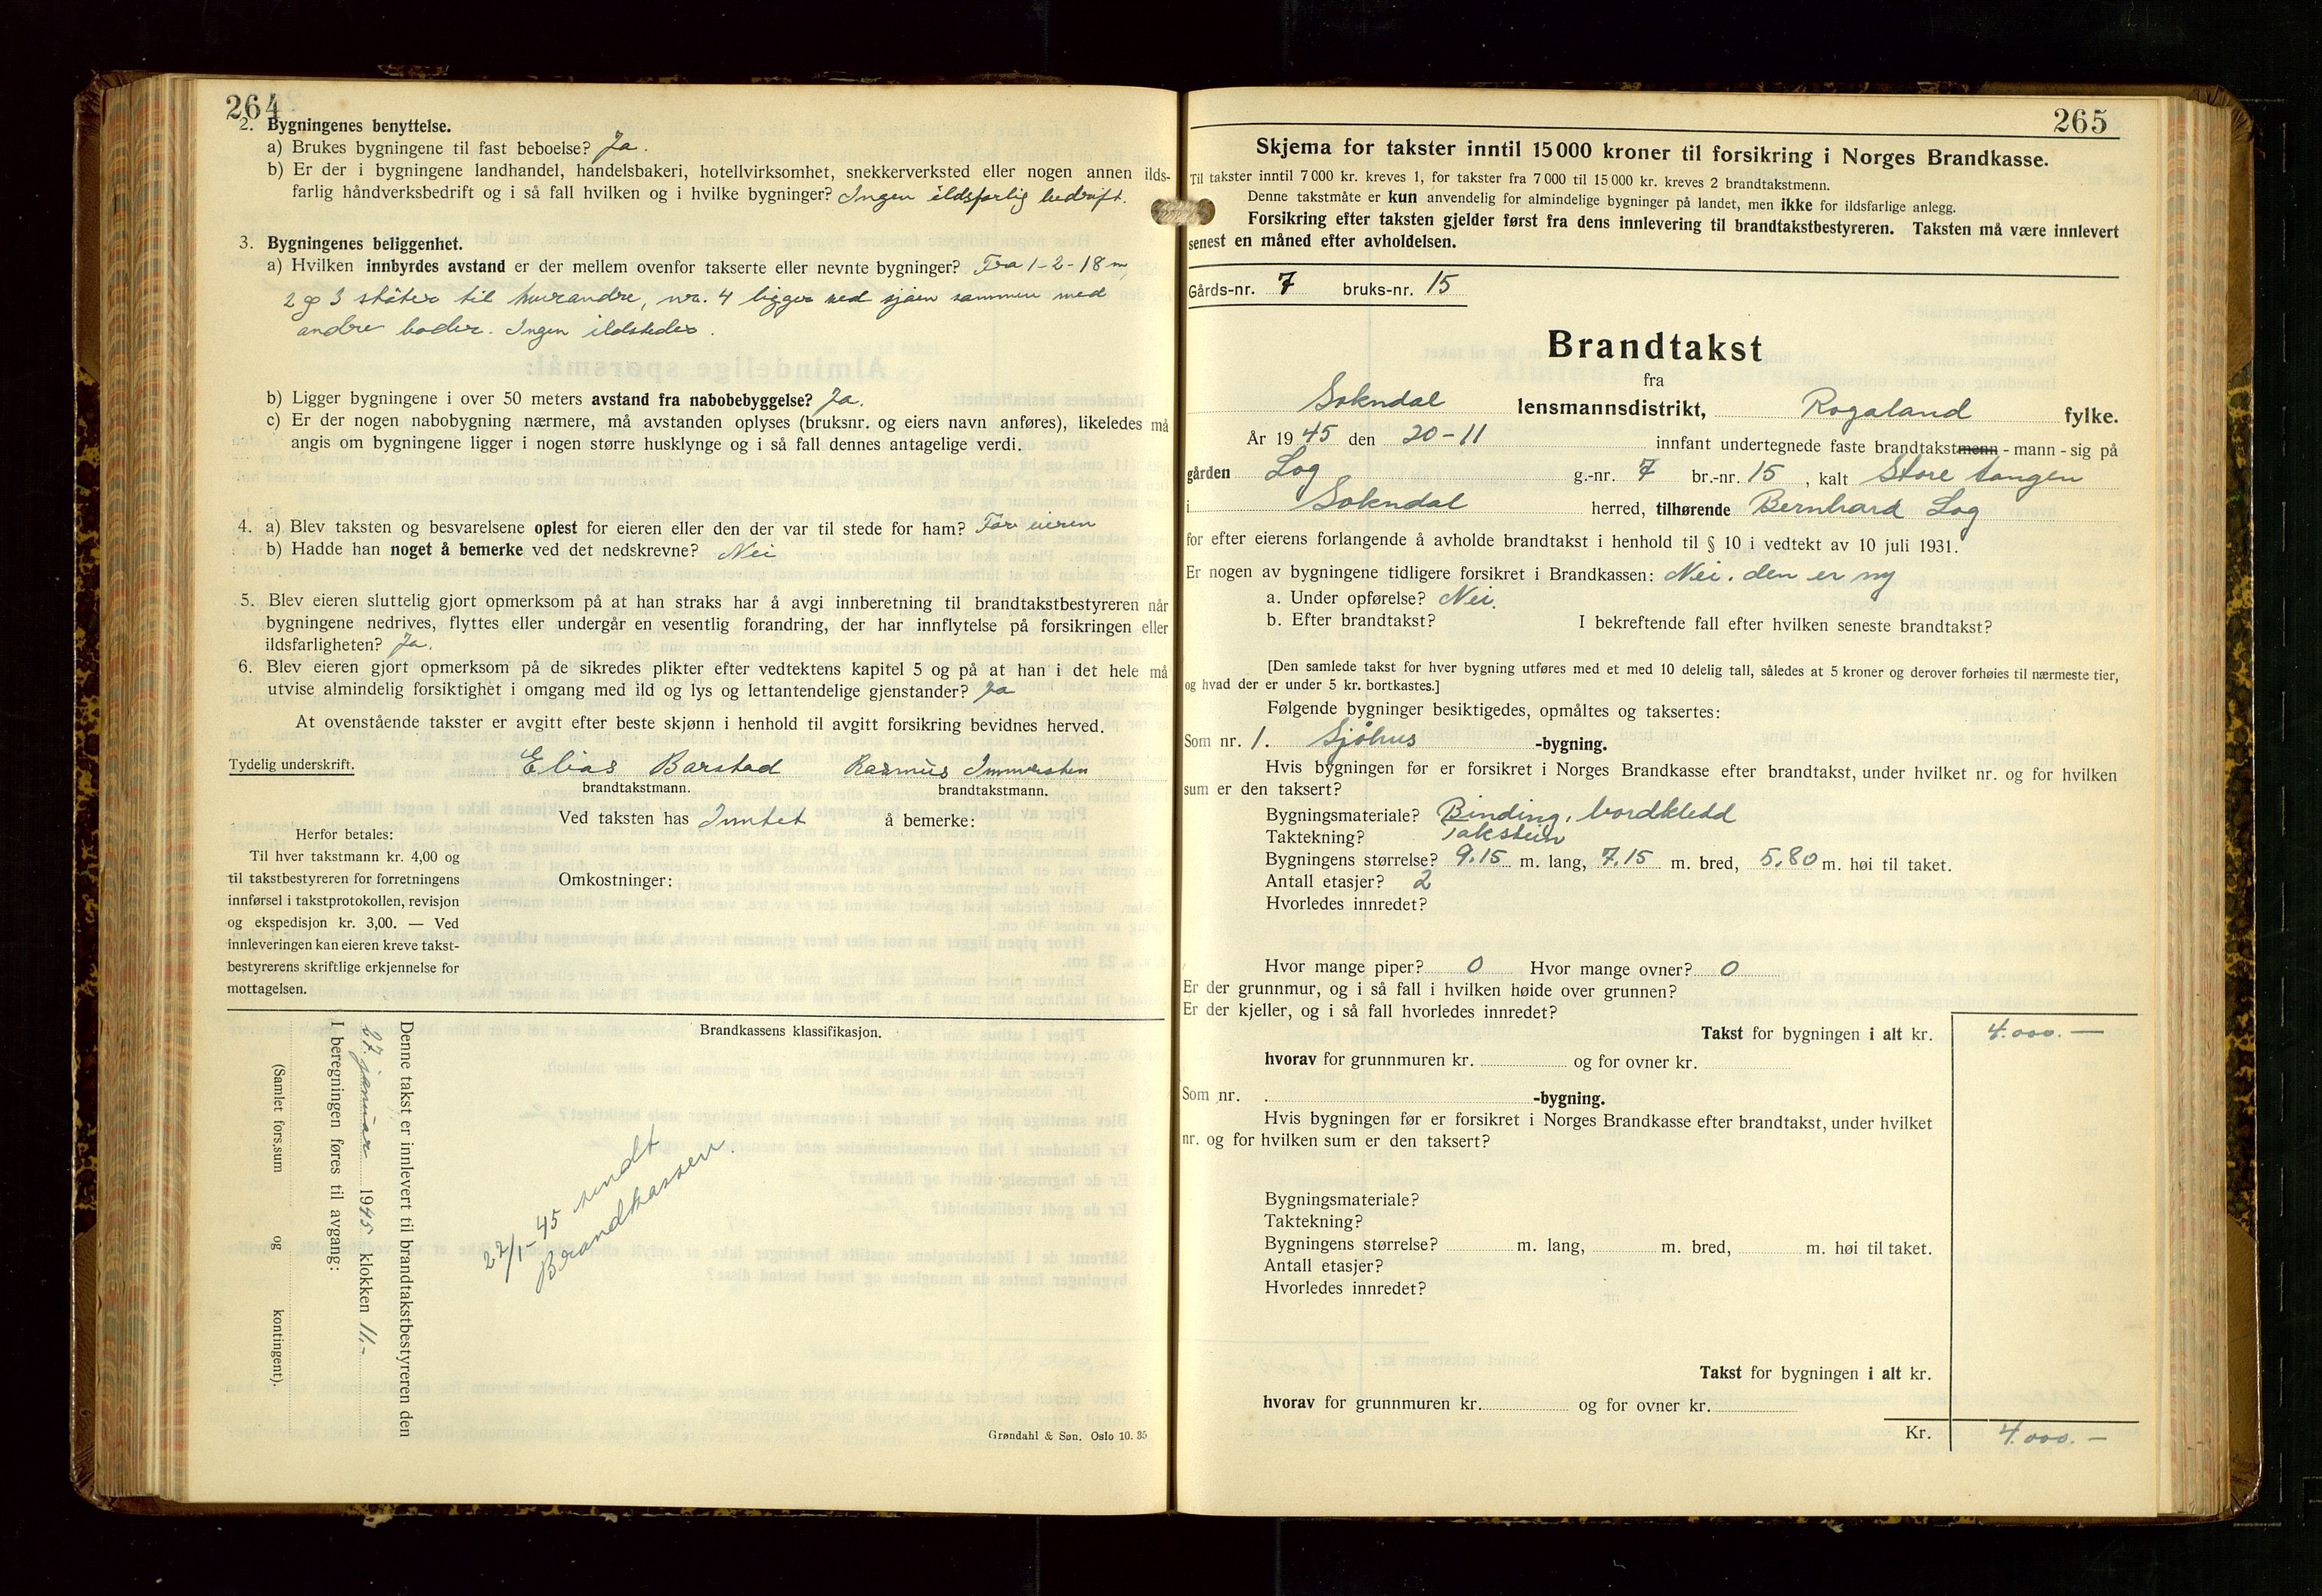 264
2. Bygningenes benyttelse.
a) Brukes bygningene til fast beboelse? Ja.
b) Er der i bygningene landhandel, handelsbakeri, hotellvirksomhet, snekkerverksted eller nogen annen ilds-
farlig håndverksbedrift og i så fall hvilken og i hvilke bygninger? Ingen ildsfarlig bedrift.
3. Bygningenes beliggenhet.
a) Hvilken innbyrdes avstand er der mellem ovenfor takserte eller nevnte bygninger? Fra 1-2-18 m,
2 og 3 støter til hverandre, nr. 4 ligger ved sjøen sammen med
andre boder. Ingen ildsteder.
b) Ligger bygningene i over 50 meters avstand fra nabobebyggelse? Ja.
c) Er der nogen nabobygning nærmere, må avstanden oplyses (bruksnr. og eiers navn anføres), likeledes må
angis om bygningene ligger i nogen større husklynge og i så fall dennes antagelige verdi.
4. a) Blev taksten og besvarelsene oplest for eieren eller den der var til stede for ham? For eieren
b) Hadde han noget å bemerke ved det nedskrevne? Nei
5. Blev eieren sluttelig gjort opmerksom på at han straks har å avgi innberetning til brandtakstbestyreren når
bygningene nedrives, flyttes eller undergår en vesentlig forandring, der har innflytelse på forsikringen eller
ildsfarligheten? Ja.
6. Blev eieren gjort opmerksom på de sikredes plikter efter vedtektens kapitel 5 og på at han i det hele må
utvise almindelig forsiktighet i omgang med ild og lys og lettantendelige gjenstander? Ja
At ovenstående takster er avgitt efter beste skjønn i henhold til avgitt forsikring bevidnes herved.
Tydelig underskrift. Elias Barstad Rasmus
brandtakstmann. brandtakstmann.
Ved taksten has Inntet å bemerke:
Herfor betales:
Til hver takstmann kr. 4,00 og
til takstbestyreren for forretningens
innførsel i takstprotokollen, revisjon
og ekspedisjon kr. 3,00. — Ved
innleveringen kan eieren kreve takst-
bestyrerens skriftlige erkjennelse for
mottagelsen.
Omkostninger:
Brandkassens klassifikasjon.
Denne takst er innlevert til brandtakstbestyreren den
januar 1945 klokken 11,-
I beregningen føres til avgang:
(Samlet fors.sum og kontingent).
22/1-45 sendt
Brandkassen.
Grøndahl & Søn. Oslo 10. 35
265
Skjema for takster inntil 15 000 kroner til forsikring i Norges Brandkasse.
Til takster inntil 7 000 kr. kreves 1, for takster fra 7 000 til 15 000 kr. kreves 2 brandtakstmenn.
Denne takstmåte er kun anvendelig for almindelige bygninger på landet, men ikke for ildsfarlige anlegg.
Forsikring efter taksten gjelder først fra dens innlevering til brandtakstbestyreren. Taksten må være innlevert
senest en måned efter avholdelsen.
Gårds-nr. 7 bruks-nr. 15
Brandtakst
fra
Sokndal lensmannsdistrikt, Rogaland fylke.
År 1945 den 20-11 innfant undertegnede faste brandtakstmenn - mann - sig på
gården Log g.-nr. 7 br.-nr. 15, kalt Store tangen
i Sokndal herred, tilhørende Bernhard Log
for efter eierens forlangende å avholde brandtakst i henhold til § 10 i vedtekt av 10 juli 1931.
Er nogen av bygningene tidligere forsikret i Brandkassen: Nei. den er ny
a. Under opførelse? Nei.
b. Efter brandtakst? I bekreftende fall efter hvilken seneste brandtakst?
[Den samlede takst for hver bygning utføres med et med 10 delelig tall, således at 5 kroner og derover forhøies til nærmeste tier,
og hvad der er under 5 kr. bortkastes.]
Følgende bygninger besiktigedes, opmåltes og taksertes:
Som nr. 1. Sjøhus -bygning.
Hvis bygningen før er forsikret i Norges Brandkasse efter brandtakst, under hvilket nr. og for hvilken
sum er den taksert?
Bygningsmateriale? Binding, bordkledd
Taktekning? Takstein
Bygningens størrelse? 9,15 m. lang, 7,15 m. bred, 5,80 m. høi til taket.
Antall etasjer? 2
Hvorledes innredet?
Hvor mange piper? 0 Hvor mange ovner? 0
Er der grunnmur, og i så fall i hvilken høide over grunnen?
Er der kjeller, og i så fall hvorledes innredet?
Takst for bygningen i alt kr. 4.000.—
hvorav for grunnmuren kr. og for ovner kr.
Som nr. -bygning.
Hvis bygningen før er forsikret i Norges Brandkasse efter brandtakst, under hvilket
nr. og for hvilken sum er den taksert?
Bygningsmateriale?
Taktekning?
Bygningens størrelse? m. lang, m. bred, m. høi til taket.
Antall etasjer?
Hvorledes innredet?
Takst for bygningen i alt kr.
hvorav for grunnmuren kr. og for ovner kr.
Kr. 4.000.—